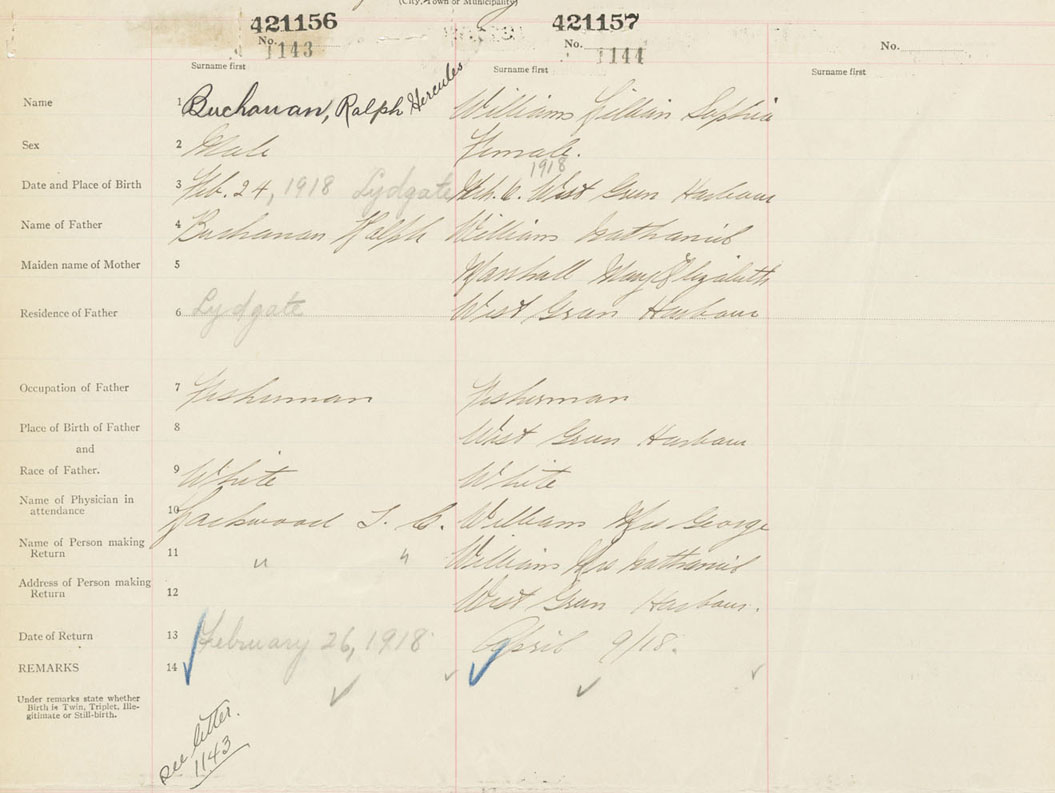 (City, Town or Municipality)
421156 421157
No. 1143 No. 1144 No.
Surname first Surname first Surname first
Name 1 Buchanan, Ralph Hercules Williams Lillian Sophia
Sex 2 Male Female.
1918
Date and Place of Birth 3 Feb. 24, 1918 Lydgate Mch. 6. West Green Harbour
Name of Father 4 Buchanan Ralph Williams Nathaniel
Maiden name of Mother 5 Marshall Mary Elizabeth
Residence of Father 6 Lydgate West Green Harbour
Occupation of Father 7 Fisherman Fisherman
Place of Birth of Father 8 West Green Harbour
and
Race of Father. 9 White White
Name of Physician in
attendance 10 Lockwood T. C. Williams Mrs George
Name of Person making
Return 11 " " Williams Mrs Nathaniel
Address of Person making
Return 12 West Green Harbour.
Date of Return 13 February 26, 1918 April 9/18.
REMARKS 14
Under remarks state whether
Birth is Twin, Triplet, Ille-
gitimate or Still-birth.
see letter.
1143